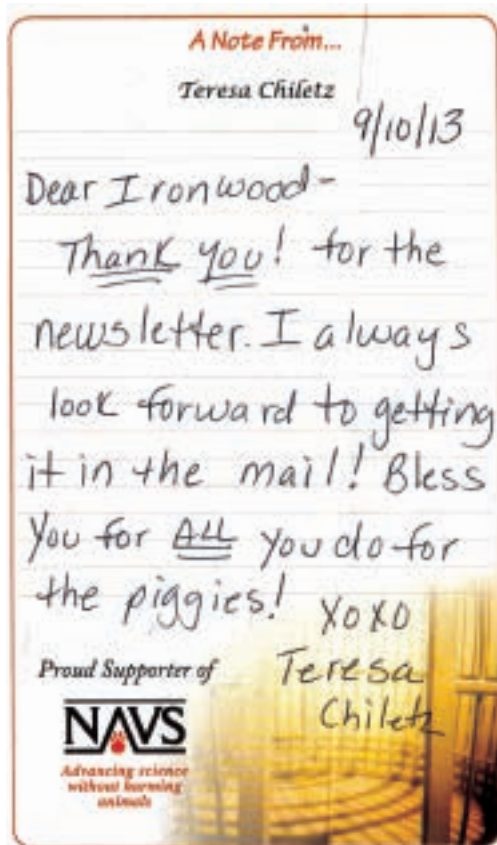 A Note From...
Teresa Chiletz
9/10/13
Dear Ironwood-
Thank you! for the
newsletter. I always
look forward to getting
it in the mail! Bless
You for ALL you do for
the piggies!
XOXO
Proud Supporter of
Teresa
Chiletz
NAVS
Advancing science
without harming
animals